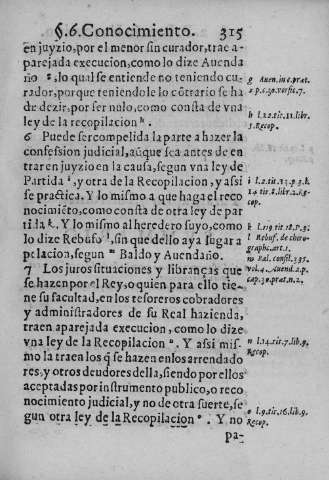 §.6.Conocimiento. 315
en juyzio, por el menor sin curador, trae a-
parejada execucion, como lo dize Auenda
ño g, lo qual se entiende no teniendo cu-
rador, porque teniendole lo cõtrario se ha
de dezir, por ser nulo, como consta de vna
ley de la recopilacion h.
6 Puede ser compelida la parte a hazer la
confession judicial, aũque sea antes de en-
trar en juyzio en la causa, segun vna ley de
Partida i, y otra de la Recopilacion, y assi
se practica. Y lo mismo a que haga el reco
nocimiẽto, como consta de otra ley de par
tida k. Y lo mismo al heredero suyo, como
lo dize Rebufo l, sin que dello aya lugar a
pelacion, segun m Baldo y Auendaño.
7 Los juros situaciones y libranças que
se hazen por el Rey, o quien para ello tie-
ne su facultad, en los tesoreros cobradores
y administradores de su Real hazienda,
traen aparejada execucion, como lo dize
vna ley de la Recopilacion n. Y assi mis-
mo la traen los q̃ se hazen en los arrendado
res, y otros deudores della, siendo por ellos
aceptadas por instrumento publico, o reco
nocimiento judicial, y no de otra suerte, se
gun otra ley de la Recopilacion o. Y no
pa-
g Auen. in c. præt.
2. p. c. 30. versic. 7.
h l.12. tit. 11. lib.
5. Recop.
i l.2. tit. 13. p. 3. l.
Recop.
k l.119 tit. 18. p. 3.
l Rebuf. de chiro-
graph. art. 1.
m Bal. consil. 395.
vol. 4. Auend. 2. p.
cap. 30. præt. n. 2.
n l.14. tit. 7. lib. 9.
Recop.
o l.9. tit. 16. lib. 9.
Recop.